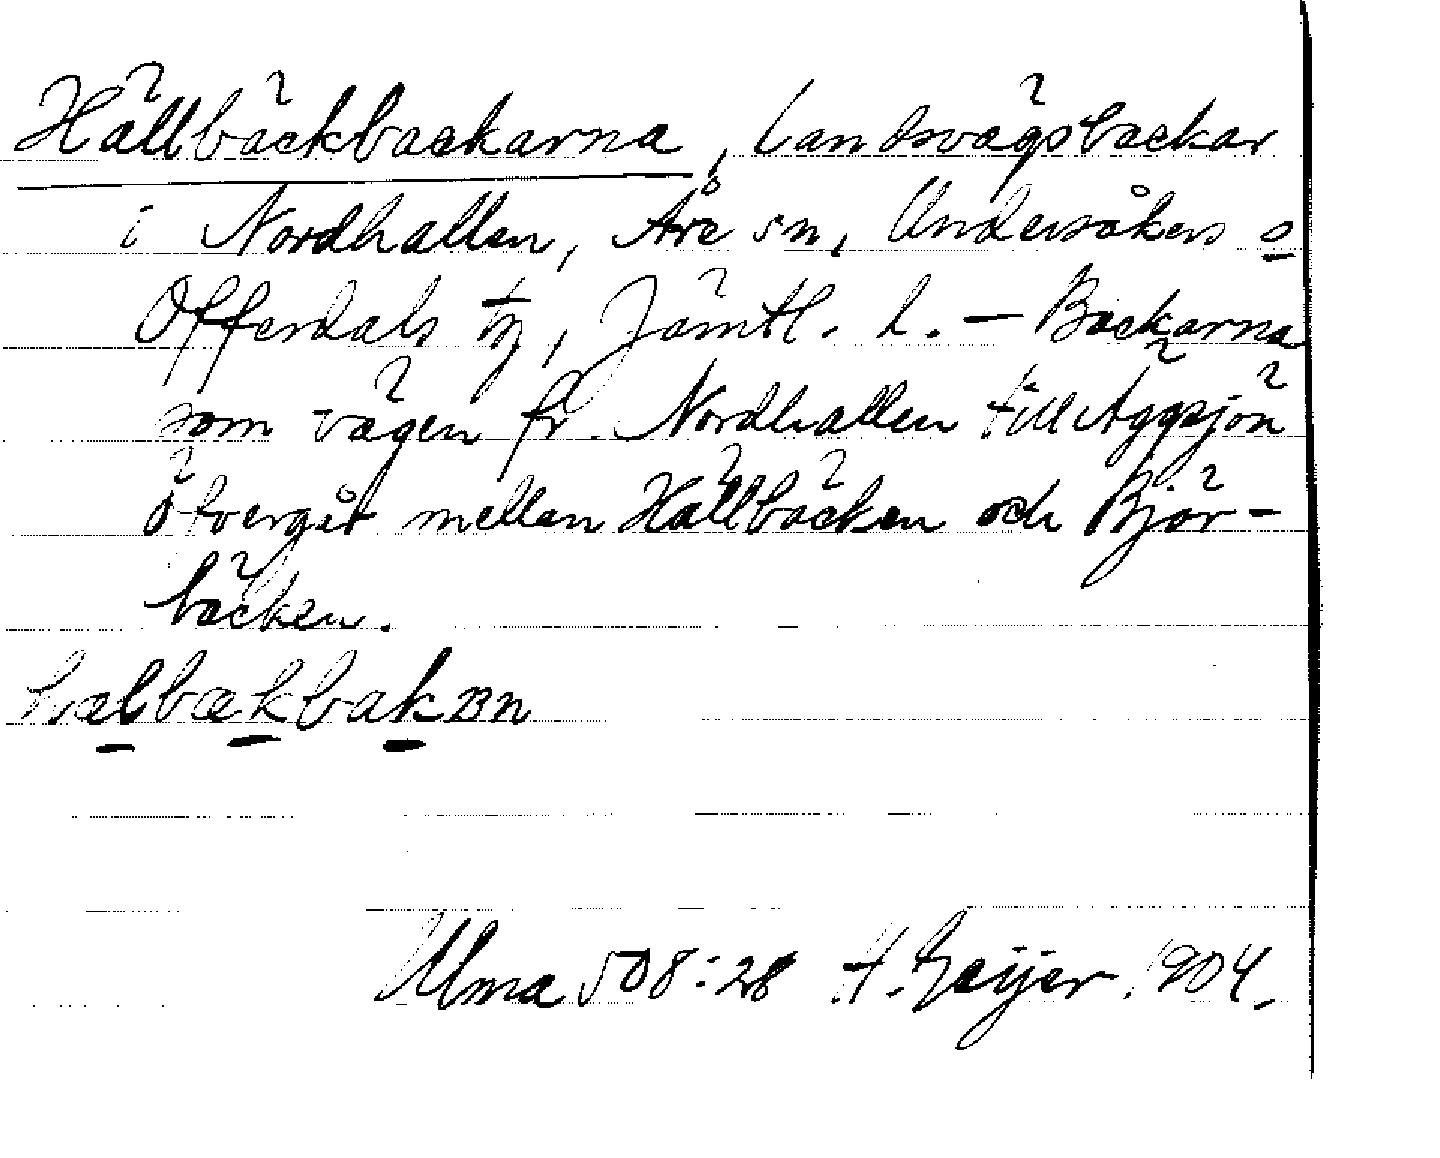 Hällbäckbackarna, landsvägsbackar
i Nordhallen, Åre sn, Undersåkers o
Offerdals tg, Jämtl. l. — Backarna
som vägen fr. Nordhallen till Äggsjön
öfvergår mellan Hällbäcken och Björ-
bäcken.
hælbækbakɐn
Ulma 508:28 H. Geijer 1904.